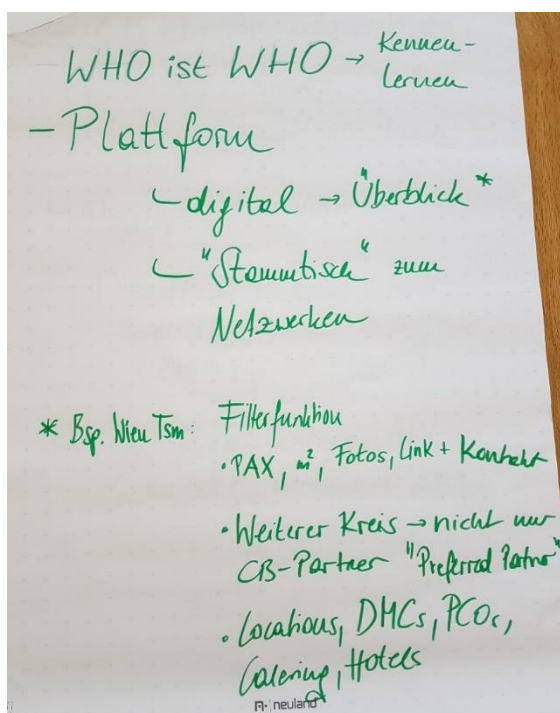 WHO ist WHO → Kennen-
lernen
- Plattform
↳ digital → Überblick *
↳ "Stammtisch" zum
Netzwerken
* Bsp. Wien Tsm: Filterfunktion
• PAX, m², Fotos, Link + Kontakt
• Weiterer Kreis → nicht nur
CB-Partner "Preferred Partner"
• Locations, DMCs, PCOs,
Catering, Hotels
neuland